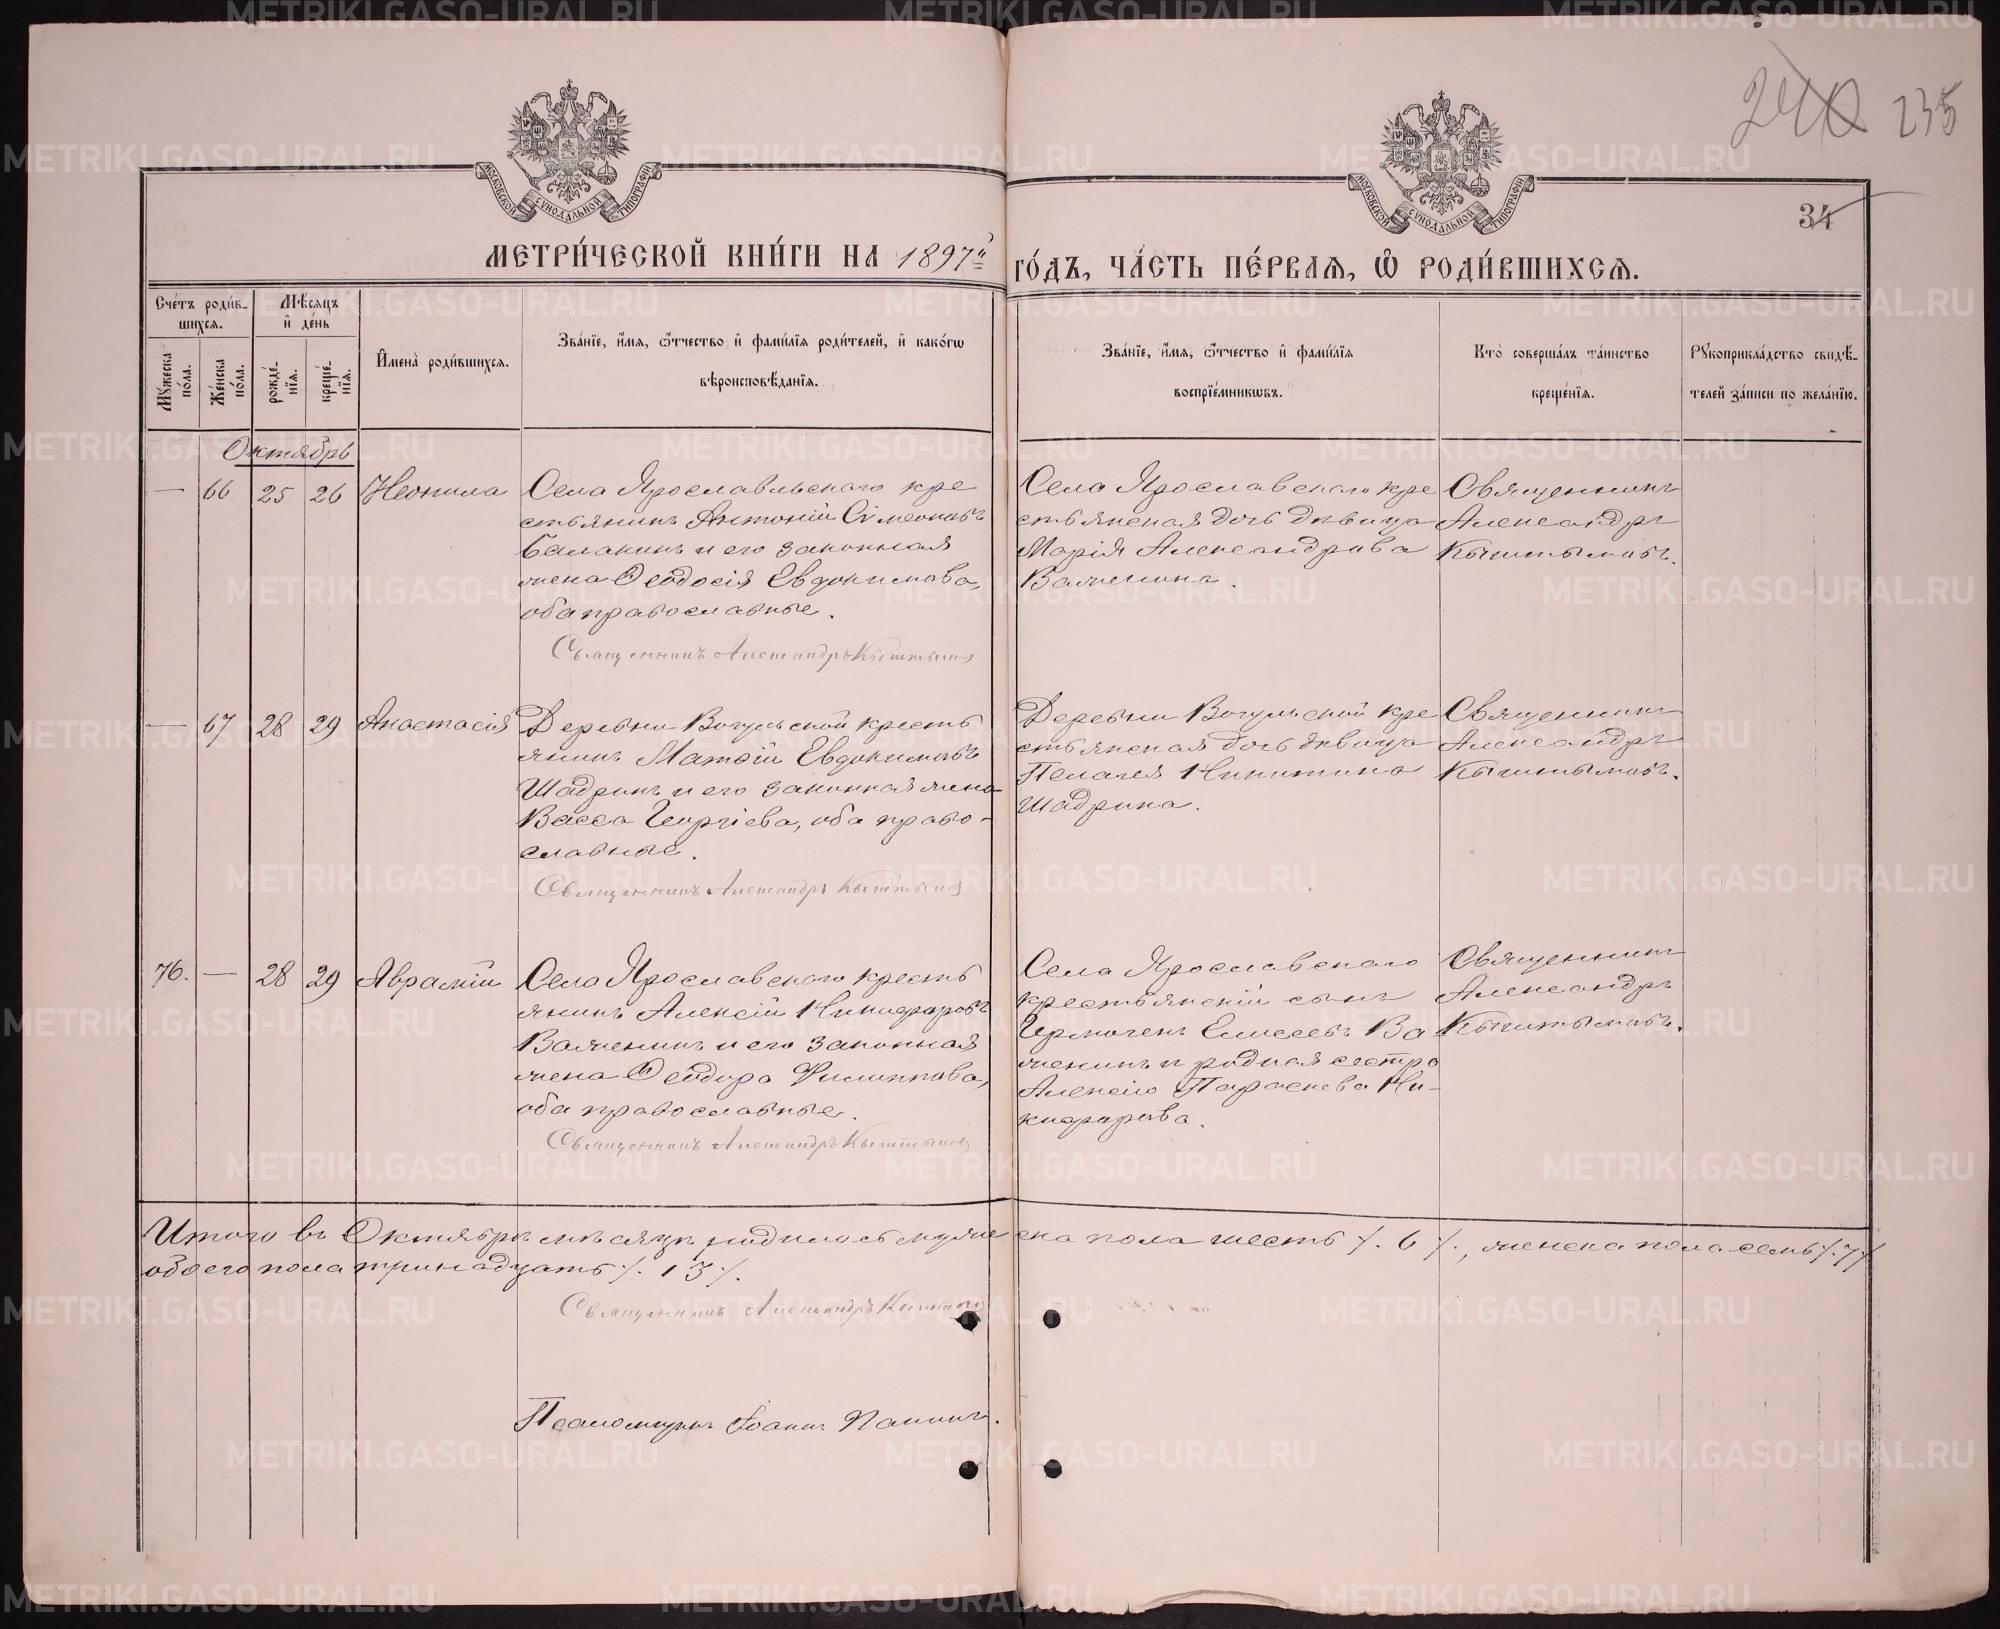 240 235
МОСКОВСКОЙ СѴНОДАЛЬНОЙ ТИПОГРАФІИ
МОСКОВСКОЙ СѴНОДАЛЬНОЙ ТИПОГРАФІИ
34
МЕТРИ́ЧЕСКОЙ КНИ́ГИ НА 1897й ГО́ДЪ, ЧА́СТЬ ПЕ́РВАЯ, Ѽ РОДИ́ВШИХСЯ.
Сче́тъ роди́в-
шихся.
Мꙋжеска по́ла.
Же́нска по́ла.
Мѣ́сяцъ
и҆ де́нь
рожде́нїя.
креще́нїя.
И҆мена̀ роди́вшихся.
Зва́нїе, и҆́мя, ѻ҆́тчество и҆ фами́лїя роди́телей, и҆ како́гѡ
вѣроисповѣ́данїя.
Зва́нїе, и҆́мя, ѻ҆́тчество и҆ фами́лїя
воспрїе́мникѡвъ.
Кто̀ соверша́лъ та́инство
креще́нїя.
Рꙋкоприкла́дство свидѣ́-
телей за́писи по жела́нїю.
Октябрь
— 66 25 26 Неонила
Села Ярославльскаго кре
стьянинъ Антоній Сімеоновъ
Балакинъ и его законная
жена Ѳеодосія Евдокимова,
оба православные.
Священникъ Александръ Кыштымов
Села Ярославскаго кре
стьянская дочь дѣвица
Марія Александрова
Важенина.
Священникъ
Александръ
Кыштымовъ.
— 67 28 29 Анастасія
Деревни Вогульской кресть
янинъ Матѳій Евдокимовъ
Шадринъ и его законная жена
Васса Георгіева, оба право-
славные.
Священникъ Александръ Кыштымов
Деревни Вогульской кре
стьянская дочь дѣвица
Пелагея Никитина
Шадрина.
Священникъ
Александръ
Кыштымовъ.
76. — 28 29 Аврамій
Села Ярославскаго кресть
янинъ Алексій Никифоровъ
Важенинъ и его законная
жена Ѳеодора Филиппова,
оба православные.
Священникъ Александръ Кыштымов
Села Ярославскаго
крестьянскій сынъ
Гермогенъ Елисеевъ Ва
женинъ и родная сестра
Алексію Параскева Ни-
кифорова.
Священникъ
Александръ
Кыштымовъ.
Итого въ Октябрѣ мѣсяцѣ родилось мужеска пола шесть /. 6 /., женска пола семь /. 7 /.
обоего пола тринадцать /. 13 /.
Священникъ Александръ Кыштымов
Псаломщикъ Іоаннъ Панинъ.
METRIKI.GASO-URAL.RU